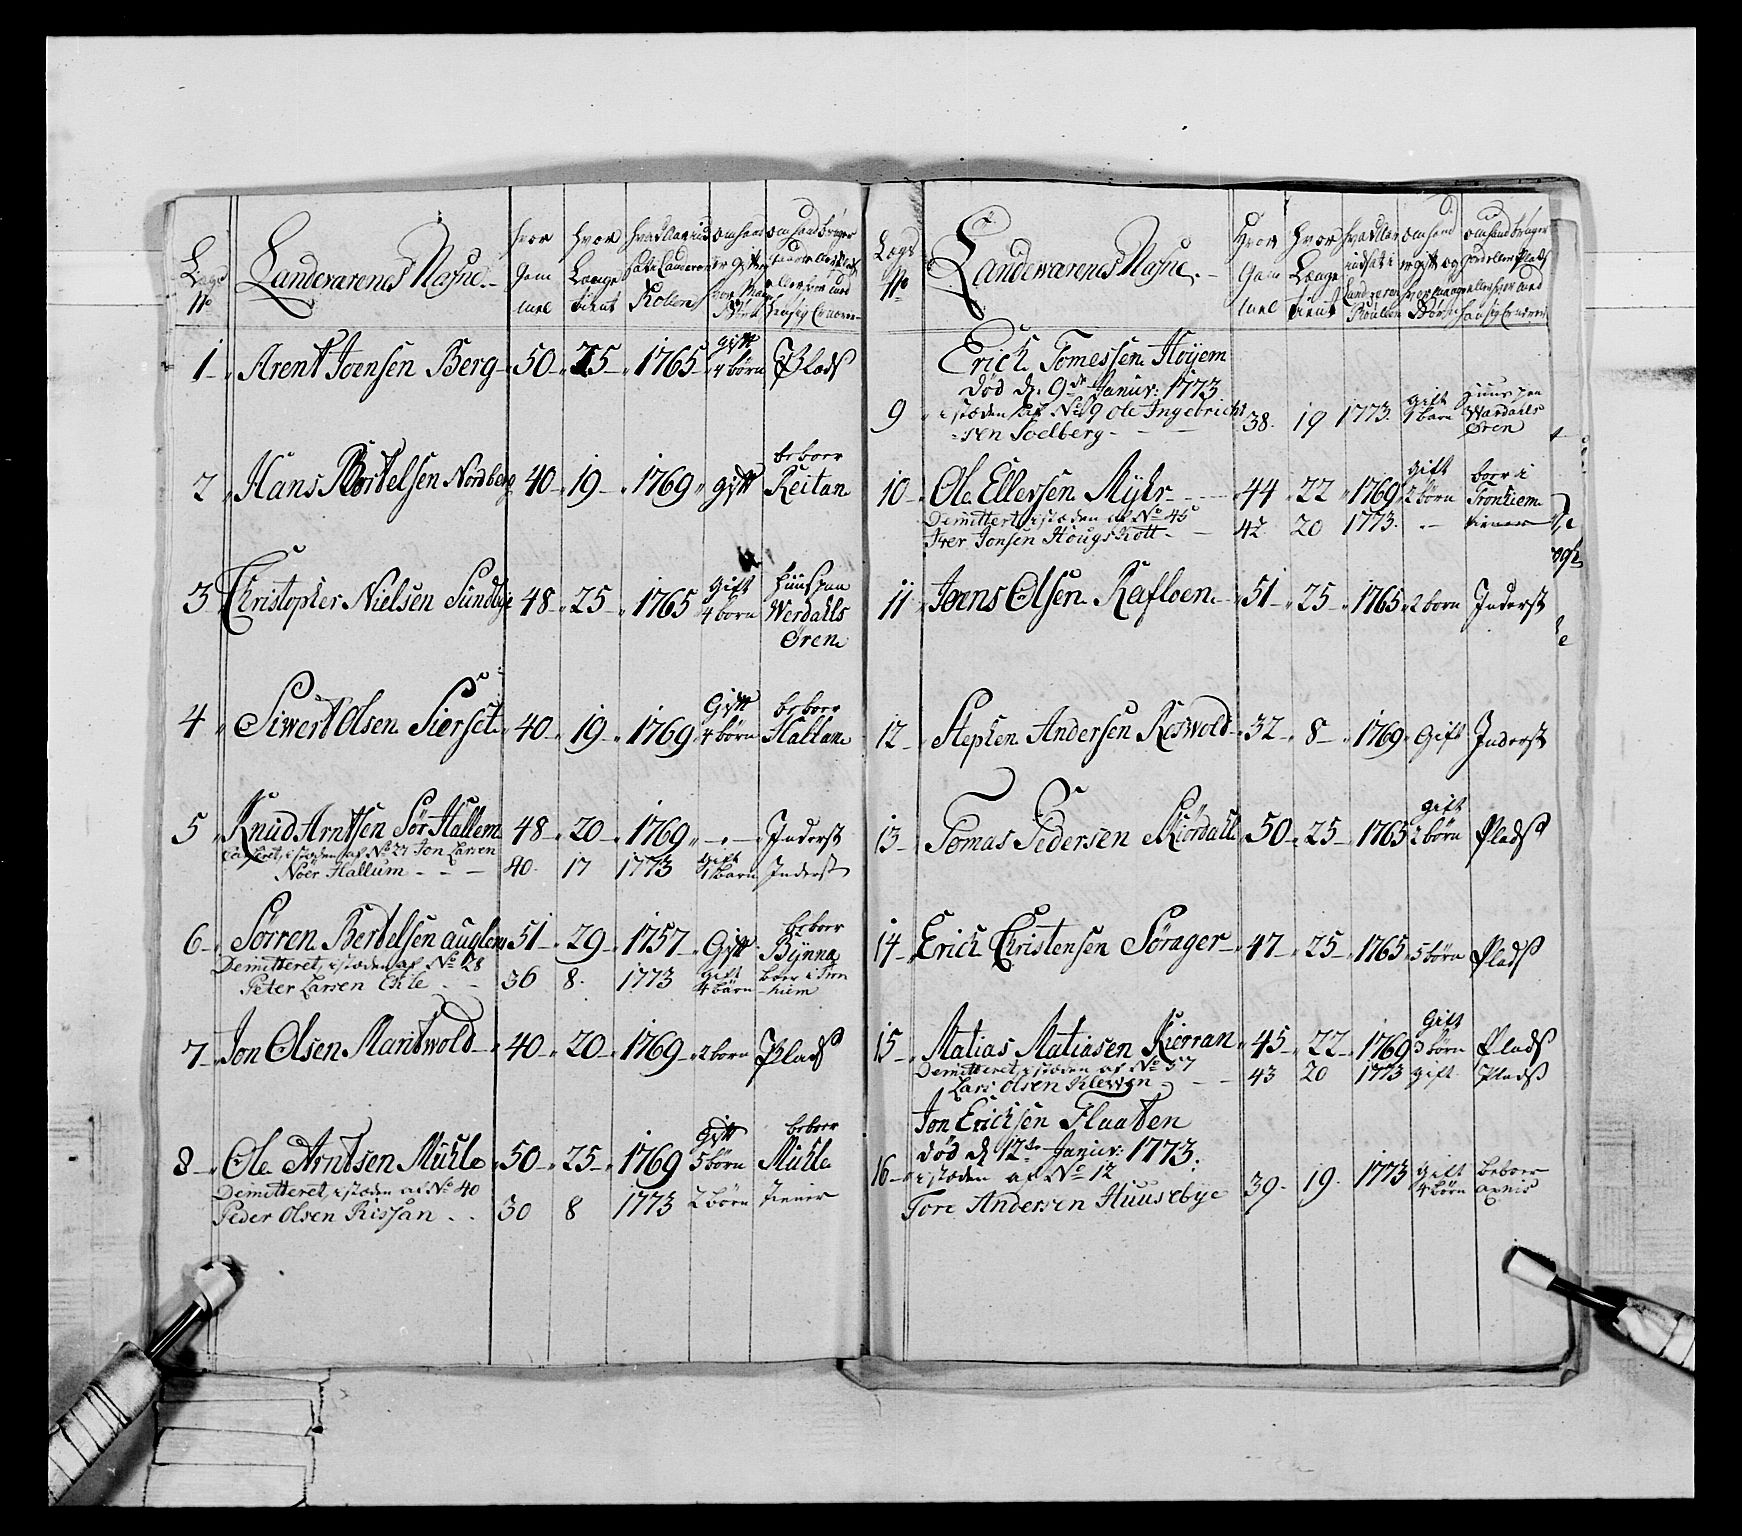 Lægs No
Landevarenes Nafne.
hvor Gam mel
hvor Længe tient
hvad Aar ind sat i Landeværn Rollen
om hand er gift
om hand bruger
1 Arent Joensen Berg 50 25 1765 gift 4 börn Plads
2 Hans Bertelsen Nordberg 40 19 1769 gift beboer Reitan
3 Christopher Nielsen Sundbye 48 25 1765 gift 4 born Huuspen Werdahls Øren
4 Siwert Olsen Sierset 40 19 1769 Gift 4 börn beboer Hallan
5 Knud Arntsen Sör Hallem 48 20 1769 Inderst
Casseret, i stæden af No 27 Jon Larsen
Noer Hallum 40 17 1773 gift 1 barn Inderst
6 Sørren Bertelsen auglen 51 29 1757 Gift beboer Bÿnna
Demitteret, i stæden af No 28
Peter Larsen Ekle 36 8 1773 gift 4 börn boer i Tron hiem
7 Jon Olsen Maritwold 40 20 1769 2 born Plads
8 Ole Arntsen Muhle 50 25 1769 Gift 5 börn beboer Muhle
Demitteret, i stæden af No 40
Peder Olsen Rissan 30 8 1773 2 börn tiener
Lægs No
Landewarenes Nafne.
Hvor Gam mel
hvor Længe tient
hvad Aar indsat i Landværn Roullen
om hand er gift og
om hand bruger
Erich Tomessen Höÿem
död d. 9de Januv: 1773
9 i stæden af No 9 Ole Ingebricht
sen Soelberg 38 19 1773 gift 1 barn Huuspen Wardahls Øren
10 Ole Ellevsen Mÿhr 44 22 1769 gift 2 börn boer i Tronhiem
Demittert, i stæden af No 45
Iver Jonsen Hougskott 42 20 1773 tiener
11 Joens Olsen Rafloen 51 25 1765 2 born Inderst
12 Stephen Andersen Roswold 32 8 1769 Gift Inderst
13 Tomas Pedersen Skiördahl 50 25 1765 gift 2 börn Plads
14 Erich Christensen Sörager 47 25 1765 5 börn Plads
15 Matias Matiasen Kierran 45 22 1769 Gift 3 börn Plads
Demitteret, i stæden af No 57
Lars Olsen Klewen 43 20 1773 gift Plads
Jon Erichsen Flaaten
död d 12te Januv: 1773:
16 i stæden af No 12
Tore Andersen Huusebye 39 19 1773 gift 4 börn beboer